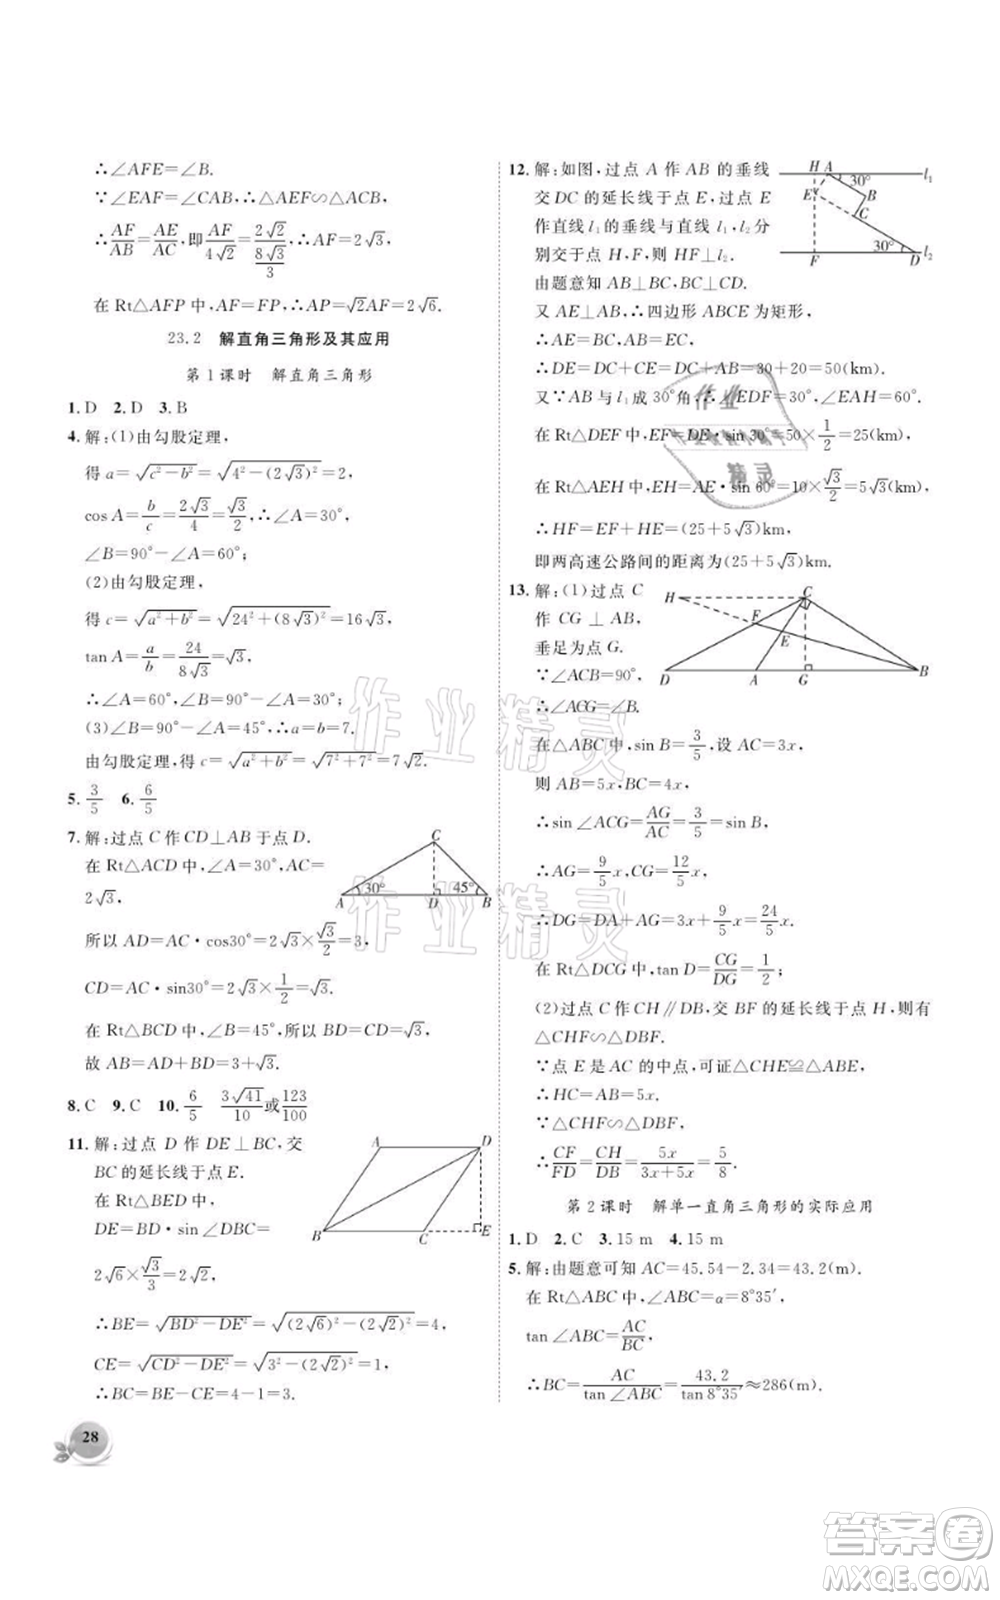 ∴∠AFE=∠B.
∵∠EAF=∠CAB,∴△AEF∽△ABC,
∴AF/AB=AE/AC,即AF/(4√2)=(2√2)/(8√3/3)=2√3,
在 Rt△AFP 中,AF=FP,∴AP=√2AF=2√6.
23.2 解直角三角形及其应用
第1课时 解直角三角形
1. D 2. D 3. B
4. 解:(1)由勾股定理,
得 a=√(c²-b²)=√(4²-(2√3)²)=2,
cos A=b/c=(2√3)/4=√3/2,∴∠A=30°,
∠B=90°-∠A=60°;
(2)由勾股定理,
得 c=√(a²+b²)=√(24²+(8√3)²)=16√3,
tan A=a/b=24/(8√3)=√3,
∴∠A=60°,∠B=90°-60°=30°;
(3)∠B=90°-∠A=45°,∴a=b=7.
由勾股定理,得 c=√(a²+b²)=√(7²+7²)=7√2.
5. 3/5 6. 6/5
7. 解:过点 C 作 CD⊥AB 于点 D.
在 Rt△ACD 中,∠A=30°,AC=
2√3,
所以 AD=AC·cos30°=2√3×√3/2=3,
CD=AC·sin30°=2√3×1/2=√3.
在 Rt△BCD 中,∠B=45°,所以 BD=CD=√3,
故 AB=AD+BD=3+√3.
A 30° C D 45° B
8. C 9. C 10. 6/5 (3√41)/10或123/100
11. 解:过点 D 作 DE⊥BC,交
BC 的延长线于点 E.
在 Rt△BED 中,
DE=BD·sin∠DBC=
2√6×√3/3=2√2,
∴BE=√(BD²-DE²)=√((2√6)²-(2√2)²)=4,
CE=√(CD²-DE²)=√(3²-(2√2)²)=1,
∴BC=BE-CE=4-1=3.
A D B C E
28
12. 解:如图,过点 A 作 AB 的垂线
交 DC 的延长线于点 E,过点 E
作直线 l₁的垂线与直线 l₁,l₂分
别交于点 H,F,则 HF⊥l₂.
由题意知 AB⊥BC,BC⊥CD.
又∵AE⊥AB,∴四边形 ABCE 为矩形,
∴AE=BC,AB=EC.
∴DE=DC+CE=DC+AB=30+20=50(km).
又∵AB 与 l₁成 30°角,∴∠EDF=30°,∠EAH=60°.
在 Rt△DEF 中,EF=DE·sin 30°=50×1/2=25(km),
在 Rt△AEH 中,EH=AE·sin 60°=10×√3/2=5√3(km),
∴HF=EF+HE=(25+5√3)km,
即两高速公路间的距离为(25+5√3)km.
H A 30° l₁ E B C 30° F D l₂
13. 解:(1)过点 C
作 CG⊥AB,
垂足为点 G.
∵∠ACB=90°,
∴∠ACG=∠B.
在△ABC 中,sin B=3/5,设 AC=3x,
则 AB=5x,BC=4x,
∴sin∠ACG=AG/AC=3/5=sin B,
∴AG=9/5x,CG=12/5x,
∴DG=DA+AG=3x+9/5x=24/5x,
在 Rt△DCG 中,tan D=CG/DG=1/2;
(2)过点 C 作 CH∥DB,交 BF 的延长线于点 H,则有
△CHF∽△DBF.
∵点 E 是 AC 的中点,可证△CHE≌△ABE,
∴HC=AB=5x.
∵△CHF∽△DBF,
∴CF/FD=CH/DB=5x/(3x+5x)=5/8.
H C F E D A G B
第2课时 解单一直角三角形的实际应用
1. D 2. C 3. 15 m 4. 15 m
5. 解:由题意可知 AC=45.54-2.34=43.2(m).
在 Rt△ABC 中,∠ABC=α=8°35′,
tan∠ABC=AC/BC,
∴BC=AC/tan∠ABC=43.2/tan8°35′≈286(m).
作业精灵
作业精灵
作业精灵
答案卷
MXQE.COM